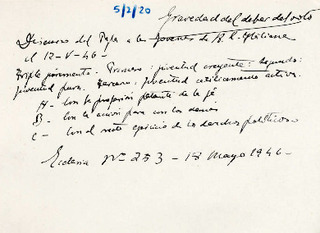 5/2/20
Gravedad del deber del voto
Discurso del Papa a los Jovenes de A. C. Italiana
el 12-V-46-
Triple juramento: Primero: juventud creyente: Segundo:
juventud pura. Tercero, juventud católicamente activa.
A- Con la profesión patente de la fe
B- Con la acción para con los demás
C- Con el recto ejercicio de los derechos políticos
Ecclesia Nº 253 - 18 Mayo 1946-